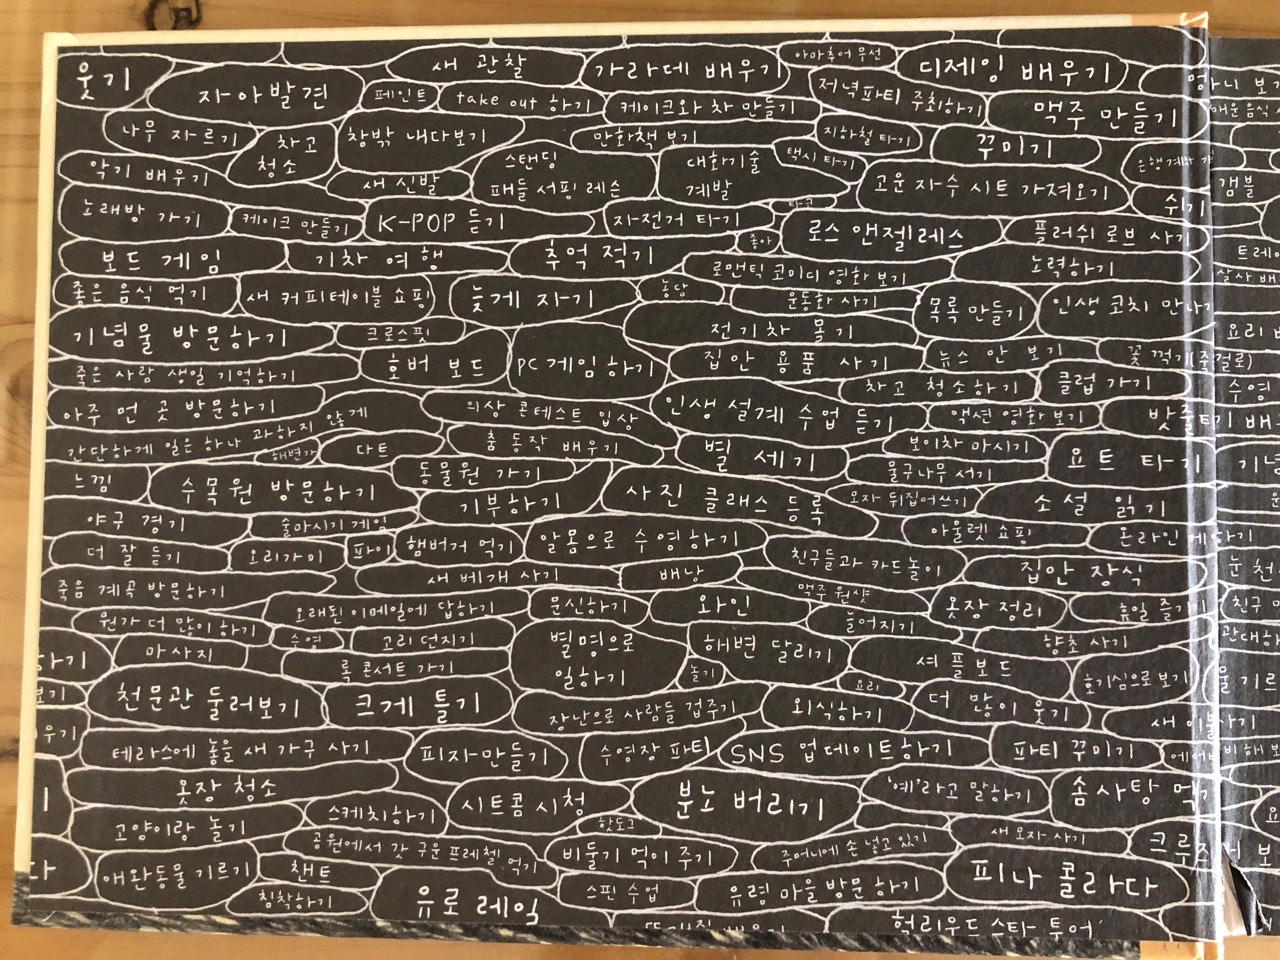 웃기
자아발견
페인트
새 관찰
take out 하기
가라데 배우기
케이크와 차 만들기
아마추어 무선
저녁파티 주최하기
디제잉 배우기
맥주 만들기
나무 자르기
차고
청소
창밖 내다보기
만화책 보기
지하철 타기
꾸미기
악기 배우기
새 신발
스탠딩
패들 서핑 레슨
대화기술
계발
택시 타기
고운 자수 시트 가져오기
갬블
쉬기
노래방 가기
케이크 만들기
K-POP 듣기
자전거 타기
로스 앤젤레스
플러쉬 로브 사기
보드 게임
기차 여행
추억 적기
로맨틱 코미디 영화 보기
노력하기
좋은 음식 먹기
새 커피테이블 쇼핑
늦게 자기
농담
운동화 사기
목록 만들기
인생 코치 만나기
기념물 방문하기
크로스핏
전기차 몰기
호버 보드
PC게임하기
집안 용품 사기
뉴스 안 보기
죽은 사람 생일 기억하기
차고 청소하기
클럽 가기
수영
아주 먼 곳 방문하기
의상 콘테스트 입상
인생 설계 수업 듣기
액션 영화 보기
간단하게 일은 하나 과하지 않게
해변가
다트
춤 동작 배우기
별 세기
보이차 마시기
요트 타기
느낌
수목원 방문하기
동물원 가기
물구나무 서기
기부하기
사진 클래스 등록
모자 뒤집어쓰기
소설 읽기
야구 경기
술마시기 게임
아울렛 쇼핑
더 잘 듣기
오리가미
파이
햄버거 먹기
알몸으로 수영하기
친구들과 카드놀이
집안 장식
죽음 계곡 방문하기
새 베개 사기
배낭
맥주 원샷
오래된 이메일에 답하기
문신하기
와인
늘어지기
옷장 정리
휴일 즐기기
뭔가 더 많이 하기
수영
고리 던지기
별명으로
일하기
해변 달리기
향초 사기
마사지
록 콘서트 가기
놀기
셔플보드
요리
호기심으로 보기
천문관 둘러보기
크게 틀기
장난으로 사람들 겁주기
외식하기
더 많이 웃기
테라스에 놓을 새 가구 사기
피자만들기
수영장 파티
SNS 업데이트하기
파티 꾸미기
옷장 청소
스케치하기
시트콤 시청
분노 버리기
'예'라고 말하기
솜사탕 먹기
고양이랑 놀기
핫도그
새 모자 사기
공원에서 갓 구운 프레첼 먹기
비둘기 먹이 주기
주머니에 손 넣고 있기
애완동물 기르기
챈트
피나 콜라다
침착하기
유로 레일
스핀 수업
유령 마을 방문하기
헐리우드 스타 투어